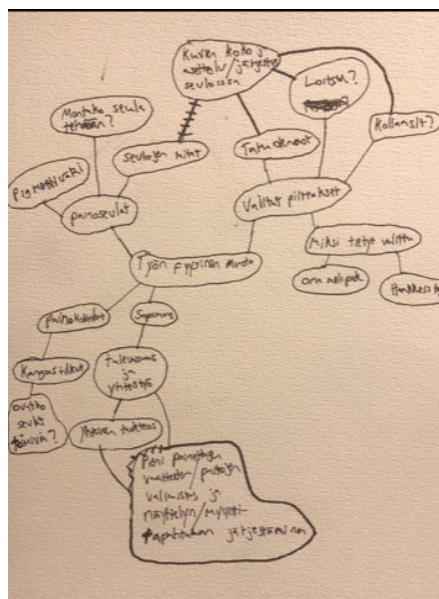 Kuvien koko ja
asettelu/järjestys
seulossa
Loitsu?
Kollaasit?
Montako seula
tehdään?
seulojen mitat
Taru olennot
Pigmenttiväri
painoseulat
Valitut piirrokset
Miksi tietyt valittu
Työn fyysinen muoto
oma mielipide
painokokeilut
Sopimus
Kangastilkut
tulevaisuus
ja
yhteistyö
ovatko
seulat
toimivia?
Yhteinen tuoteos
Pieni painettujen
vaatteiden/paitojen
valmistus ja
näyttelyn/myynti-
tapahtuman järjestäminen